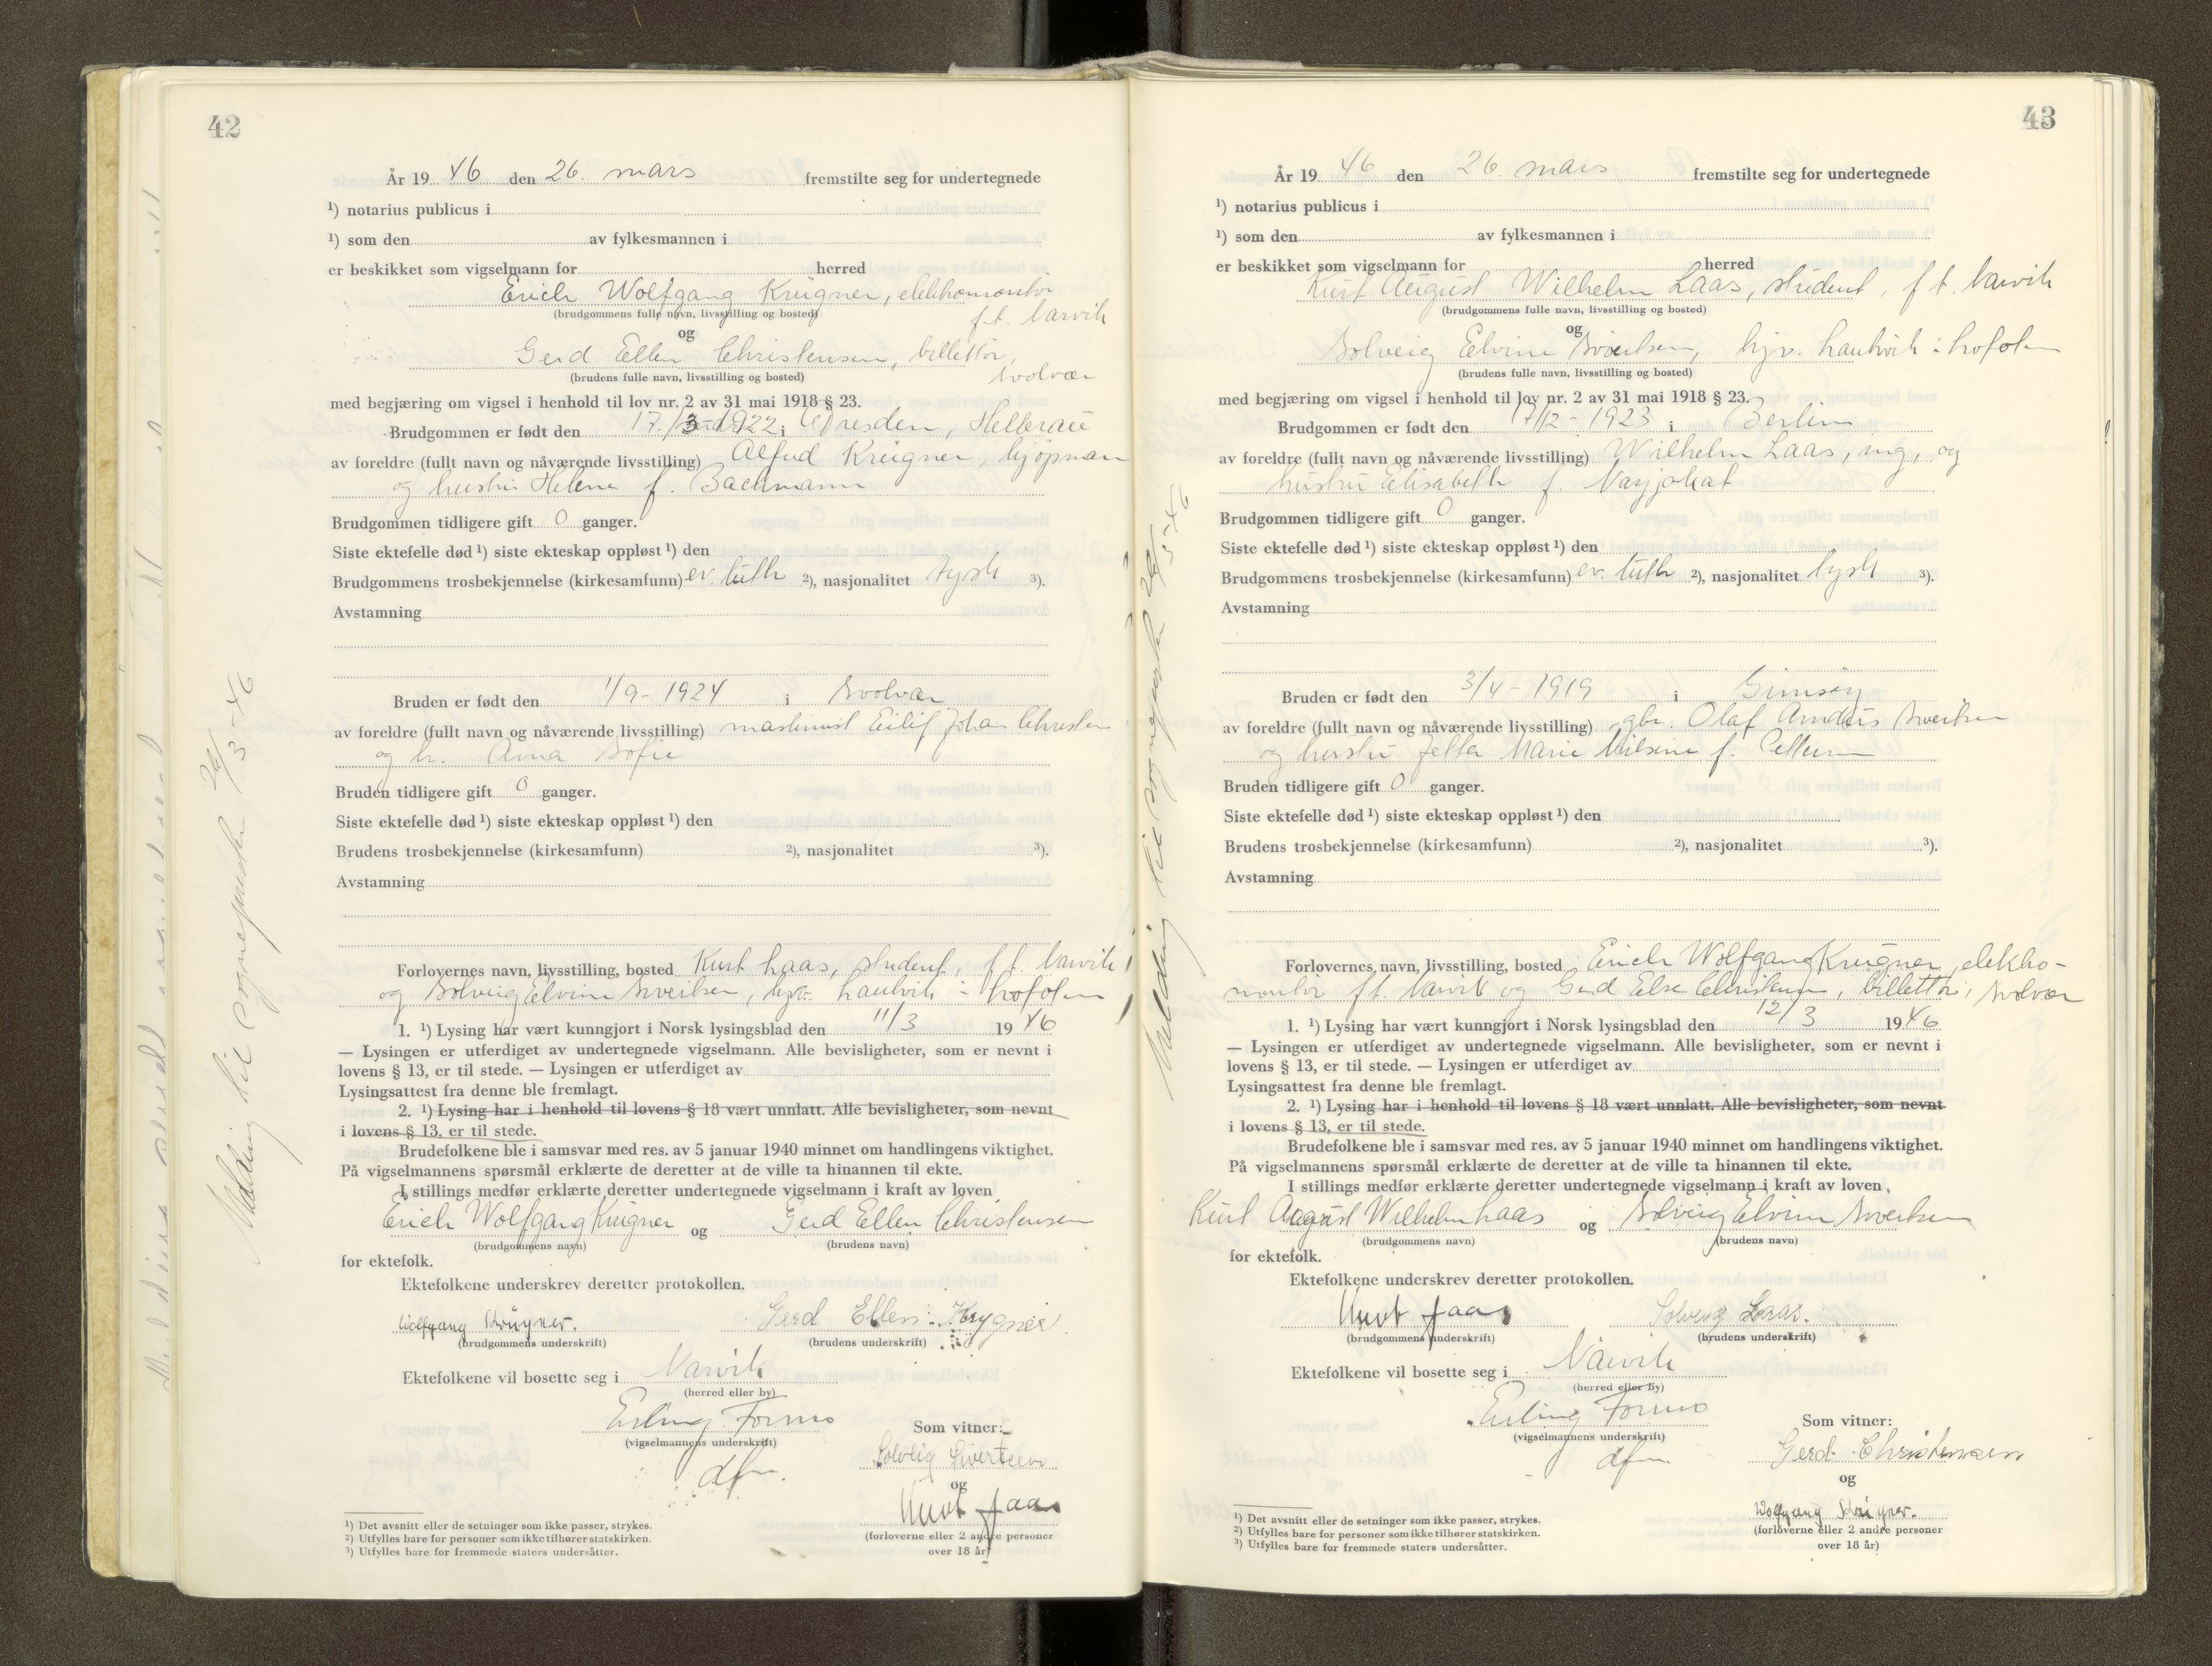 42
År 19 46 den 26. mars fremstilte seg for undertegnede
¹) notarius publicus i
¹) som den av fylkesmannen i
er beskikket som vigselmann for herred
Erich Wolfgang Krügner, elektromontør
(brudgommens fulle navn, livsstilling og bosted)
f.t. Narvik
og
Gerd Ellen Christensen, billettør,
(brudens fulle navn, livsstilling og bosted)
Svolvær
med begjæring om vigsel i henhold til lov nr. 2 av 31 mai 1918 § 23.
Brudgommen er født den 17./3 1922 i Dresden, Hellerau
av foreldre (fullt navn og nåværende livsstilling) Alfred Krügner, kjøpman
og hustru Helene f. Bachmann
Brudgommen tidligere gift 0 ganger.
Siste ektefelle død ¹) siste ekteskap oppløst ¹) den
Brudgommens trosbekjennelse (kirkesamfunn) ev. luth ²), nasjonalitet tysk ³).
Avstamning
Bruden er født den 1/9 - 1924 i Svolvær
av foreldre (fullt navn og nåværende livsstilling) maskinist Eilif Johan Christen
og h. Anna Sofie
Bruden tidligere gift 0 ganger.
Siste ektefelle død ¹) siste ekteskap oppløst ¹) den
Brudens trosbekjennelse (kirkesamfunn) ²), nasjonalitet ³).
Avstamning
Forlovernes navn, livsstilling, bosted Kurt Laas, student, f.t. Narvik
og Solveig Elvine Sivertsen, hjv. i
1. ¹) Lysing har vært kunngjort i Norsk lysingsblad den 11/3 19 46
— Lysingen er utferdiget av undertegnede vigselmann. Alle bevisligheter, som er nevnt i
lovens § 13, er til stede. — Lysingen er utferdiget av
Lysingsattest fra denne ble fremlagt.
2. ¹) Lysing har i henhold til lovens § 18 vært unnlatt. Alle bevisligheter, som nevnt
i lovens § 13, er til stede.
Brudefolkene ble i samsvar med res. av 5 januar 1940 minnet om handlingens viktighet.
På vigselmannens spørsmål erklærte de deretter at de ville ta hinannen til ekte.
I stillings medfør erklærte deretter undertegnede vigselmann i kraft av loven
Erich Wolfgang Krügner og Gerd Ellen Christensen
(brudgommens navn) (brudens navn)
for ektefolk.
Ektefolkene underskrev deretter protokollen.
Wolfgang Krügner. Gerd Ellen Krygner
(brudgommens underskrift) (brudens underskrift)
Ektefolkene vil bosette seg i Narvik
(herred eller by)
Erling Formo
(vigselmannens underskrift)
dfm.
Som vitner:
Solveig Sivertsen
og
Kurt Laas
(forloverne eller 2 andre personer
over 18 år)
¹) Det avsnitt eller de setninger som ikke passer, strykes.
²) Utfylles bare for personer som ikke tilhører statskirken.
³) Utfylles bare for fremmede staters undersåtter.
Melding til sogneprest 26/3-46
43
År 19 46 den 26. mars fremstilte seg for undertegnede
¹) notarius publicus i
¹) som den av fylkesmannen i
er beskikket som vigselmann for herred
Kurt August Wilhelm Laas, student, f.t. Narvik
(brudgommens fulle navn, livsstilling og bosted)
og
Solveig Elvine Sivertsen, hjv. i
(brudens fulle navn, livsstilling og bosted)
med begjæring om vigsel i henhold til lov nr. 2 av 31 mai 1918 § 23.
Brudgommen er født den 17/12 - 1923 i Berlin
av foreldre (fullt navn og nåværende livsstilling) Wilhelm Laas, ing, og
hustru Elisabeth f.
Brudgommen tidligere gift 0 ganger.
Siste ektefelle død ¹) siste ekteskap oppløst ¹) den
Brudgommens trosbekjennelse (kirkesamfunn) ev. luth ²), nasjonalitet tysk ³).
Avstamning
Bruden er født den 3/4 - 1919 i Gimsøy
av foreldre (fullt navn og nåværende livsstilling) gbr. Olaf Andreas Sivertsen
og hustru Marie f.
Bruden tidligere gift 0 ganger.
Siste ektefelle død ¹) siste ekteskap oppløst ¹) den
Brudens trosbekjennelse (kirkesamfunn) ²), nasjonalitet ³).
Avstamning
Forlovernes navn, livsstilling, bosted Erich Wolfgang Krügner, elektro-
montør f.t. Narvik og Gerd Else Christensen, billettør, Svolvær
1. ¹) Lysing har vært kunngjort i Norsk lysingsblad den 12/3 19 46
— Lysingen er utferdiget av undertegnede vigselmann. Alle bevisligheter, som er nevnt i
lovens § 13, er til stede. — Lysingen er utferdiget av
Lysingsattest fra denne ble fremlagt.
2. ¹) Lysing har i henhold til lovens § 18 vært unnlatt. Alle bevisligheter, som nevnt
i lovens § 13, er til stede.
Brudefolkene ble i samsvar med res. av 5 januar 1940 minnet om handlingens viktighet.
På vigselmannens spørsmål erklærte de deretter at de ville ta hinannen til ekte.
I stillings medfør erklærte deretter undertegnede vigselmann i kraft av loven
Kurt August Wilhelm Laas og Solveig Elvine Sivertsen
(brudgommens navn) (brudens navn)
for ektefolk.
Ektefolkene underskrev deretter protokollen.
Kurt Laas Solveig Laas.
(brudgommens underskrift) (brudens underskrift)
Ektefolkene vil bosette seg i Narvik
(herred eller by)
Erling Formo
(vigselmannens underskrift)
dfm.
Som vitner:
Gerd Christensen
og
Wolfgang Krügner.
(forloverne eller 2 andre personer
over 18 år)
¹) Det avsnitt eller de setninger som ikke passer, strykes.
²) Utfylles bare for personer som ikke tilhører statskirken.
³) Utfylles bare for fremmede staters undersåtter.
Melding til sogneprest 26/3-46